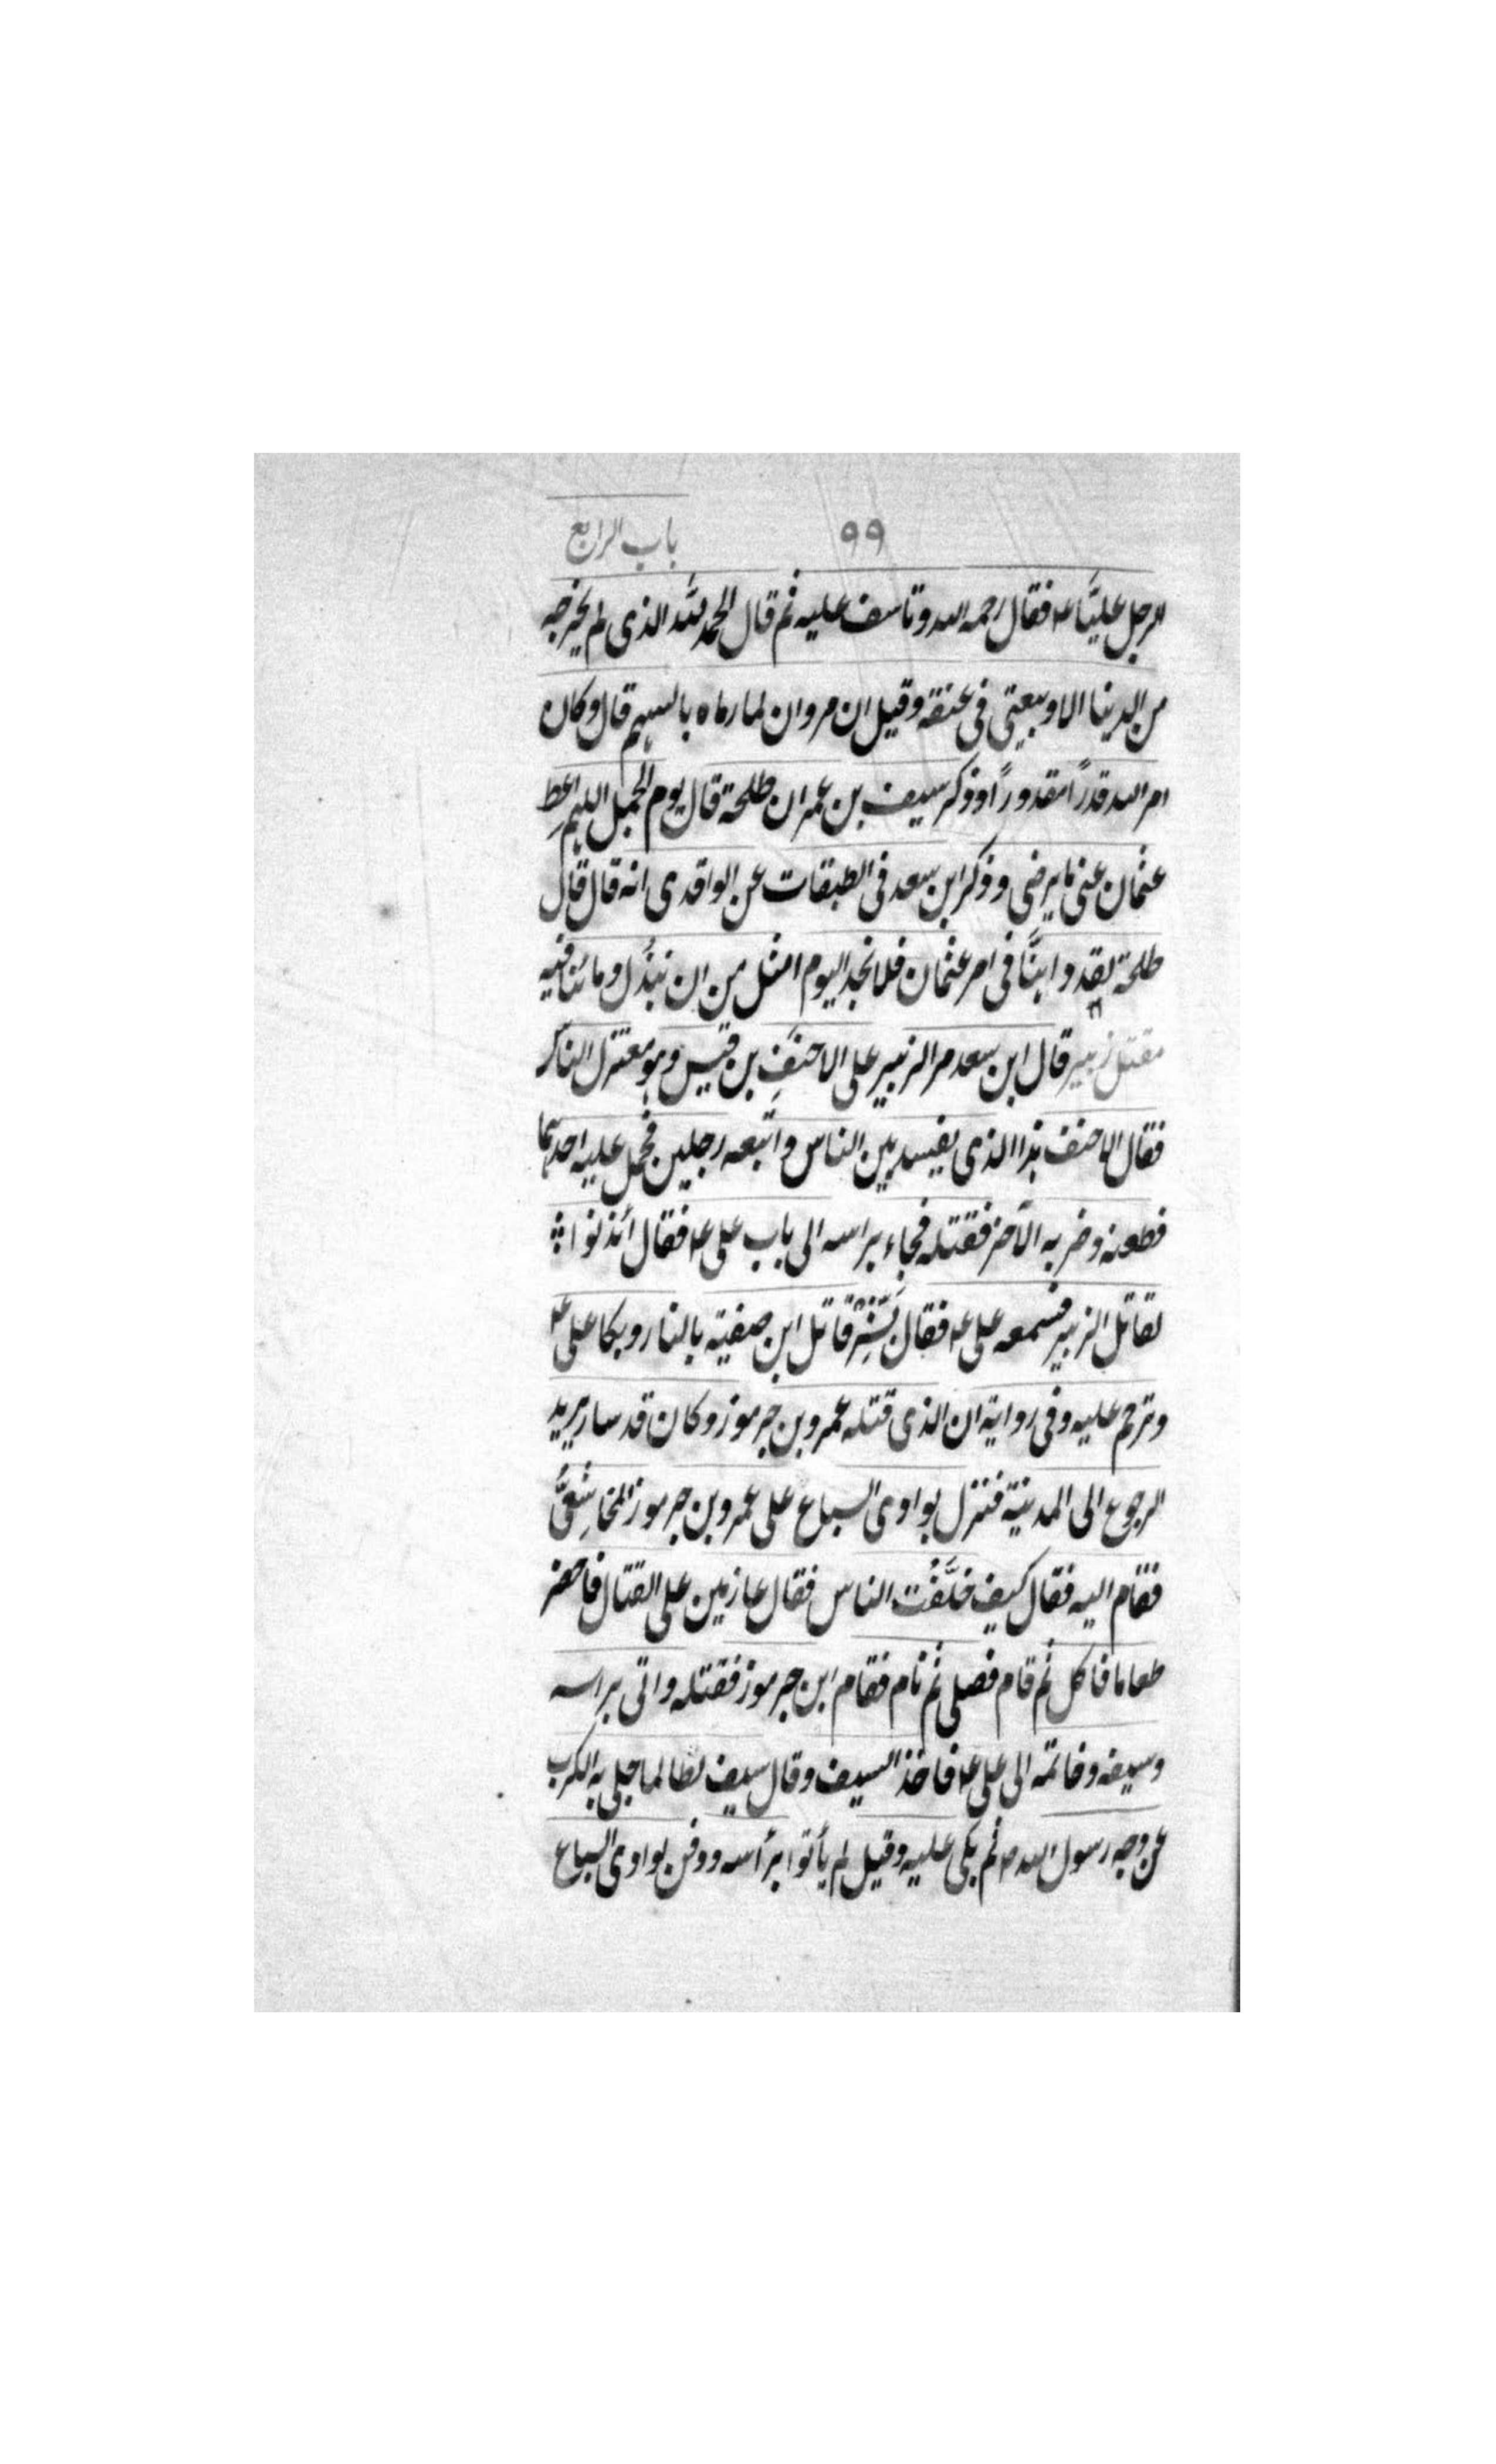 ٩٩ باب الرابع
الرجل عليًّا ع فقال رحمه الله وتاسف عليه ثم قال الحمد لله الذى لم يخرجه
من الدينا الا وبيعتى فى عنقه وقيل ان مروان لما رماه بالسهم قال وكان
امر الله قدرًا مقدورًا وذكر سيف بن عمر ان طلحة قال يوم الجمل اللهم اعطِ
عثمان عنى ما يرضى وذكر ابن سعد فى الطبقات عن الواقدى انه قال قال
طلحة لقد داهنَّا فى امر عثمان فلا نجد اليوم امثل من ان نبذُل دمائنا فيه
مقتل زبير قال ابن سعد مر الزبير على الاحنفِ بن قيس وهو معتزل الناس
فقال الاحنف هذا الذى يفسد بين الناس واتَّبعه رجلين فحمل عليه احدهما
فطعنه وضربه الآخر فقتله فجاء براسه الى باب على ع فقال ائذنوا
لقاتل الزبير فسمعه على ع فقال بَشِّرْ قاتل ابن صفيه بالنار وبكا على ع
وترحم عليه وفى رواية ان الذى قتله عمرو بن جرموز وكان قد سار يريد
الرجوع الى المدينة فنزل بوادى السباع على عمرو بن جرموز المخاشعىُّ
فقام اليه فقال كيف خلَّفْت الناس فقال عازمين على القتال فاحضر
طعاما فاكل ثم قام فصلى ثم نام فقام ابن جرموز فقتله واتى براسه
وسيفه وخاتمه الى على ع فاخذ السيف وقال سيف لطالما جلى به الكرب
عن وجه رسول الله ص ثم بكى عليه وقيل لم يأتوا برأسه ودفن بوادى السباع